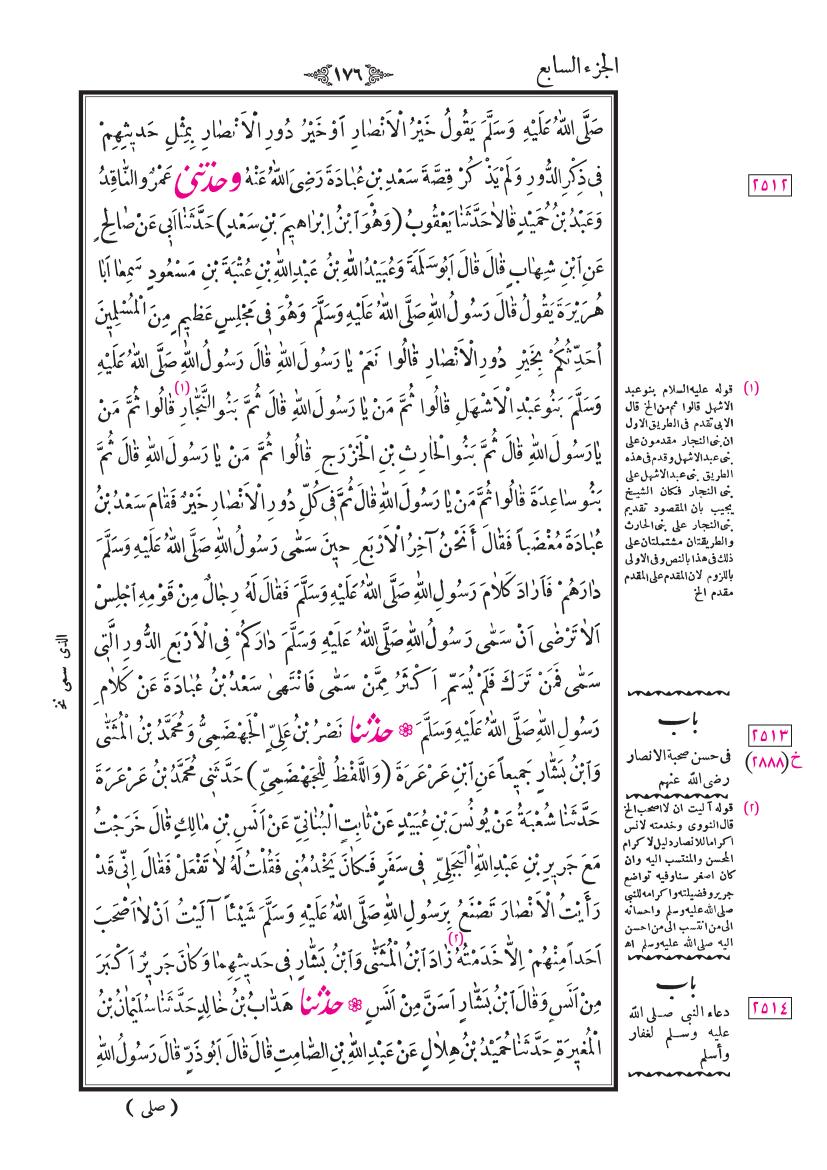 الجزء السابع
١٧٦
صَلَّى اللّٰهُ عَلَيْهِ وَسَلَّمَ يَقُولُ خَيْرُ الْاَنْصَارِ اَوْ خَيْرُ دُورِ الْاَنْصَارِ بِمِثْلِ حَديثِهِمْ
فِى ذِكْرِ الدُّورِ وَلَمْ يَذْكُرْ قِصَّةَ سَعْدِ بْنِ عُبَادَةَ رَضِىَ اللّٰهُ عَنْهُ وحَدَّثَنى عَمْرٌو النَّاقِدُ
وَعَبْدُ بْنُ حُمَيْدٍ قَالَا حَدَّثَنَا يَعْقُوبُ (وَهُوَ ابْنُ اِبْرَاهِيمَ بْنِ سَعْدٍ) حَدَّثَنَا اَبى عَنْ صَالِحٍ
عَنِ ابْنِ شِهَابٍ قَالَ قَالَ اَبُو سَلَمَةَ وَعُبَيْدُ اللّٰهِ بْنُ عَبْدِ اللّٰهِ بْنِ عُتْبَةَ بْنِ مَسْعُودٍ سَمِعَا اَبَا
هُرَيْرَةَ يَقُولُ قَالَ رَسُولُ اللّٰهِ صَلَّى اللّٰهُ عَلَيْهِ وَسَلَّمَ وَهُوَ فى مَجْلِسٍ عَظيمٍ مِنَ الْمُسْلِمينَ
اُحَدِّثُكُمْ بِخَيْرِ دُورِ الْاَنْصَارِ قَالُوا نَعَمْ يَا رَسُولَ اللّٰهِ قَالَ رَسُولُ اللّٰهِ صَلَّى اللّٰهُ عَلَيْهِ
وَسَلَّمَ بَنُو عَبْدِ الْاَشْهَلِ قَالُوا ثُمَّ مَنْ يَا رَسُولَ اللّٰهِ قَالَ ثُمَّ بَنُو النَّجَّارِ (١) قَالُوا ثُمَّ مَنْ
يَا رَسُولَ اللّٰهِ قَالَ ثُمَّ بَنُو الْحَارِثِ بْنِ الْخَزْرَجِ قَالُوا ثُمَّ مَنْ يَا رَسُولَ اللّٰهِ قَالَ ثُمَّ
بَنُو سَاعِدَةَ قَالُوا ثُمَّ مَنْ يَا رَسُولَ اللّٰهِ قَالَ ثُمَّ فى كُلِّ دُورِ الْاَنْصَارِ خَيْرٌ فَقَامَ سَعْدُ بْنُ
عُبَادَةَ مُغْضَباً فَقَالَ أَنَحْنُ آخِرُ الْاَرْبَعِ حينَ سَمَّى رَسُولُ اللّٰهِ صَلَّى اللّٰهُ عَلَيْهِ وَسَلَّمَ
دَارَهُمْ فَاَرَادَ كَلَامَ رَسُولِ اللّٰهِ صَلَّى اللّٰهُ عَلَيْهِ وَسَلَّمَ فَقَالَ لَهُ رِجَالٌ مِنْ قَوْمِهِ اجْلِسْ
اَلَا تَرْضٰى اَنْ سَمَّى رَسُولُ اللّٰهِ صَلَّى اللّٰهُ عَلَيْهِ وَسَلَّمَ دَارَكُمْ فِى الْاَرْبَعِ الدُّورِ الَّتى
سَمّٰى فَمَنْ تَرَكَ فَلَمْ يُسَمِّ اَكْثَرُ مِمَّنْ سَمّٰى فَانْتَهٰى سَعْدُ بْنُ عُبَادَةَ عَنْ كَلَامِ
رَسُولِ اللّٰهِ صَلَّى اللّٰهُ عَلَيْهِ وَسَلَّمَ حَدَّثَنَا نَصْرُ بْنُ عَلِىٍّ الْجَهْضَمِىُّ وَمُحَمَّدُ بْنُ الْمُثَنّٰى
وَابْنُ بَشَّارٍ جَميعاً عَنِ ابْنِ عَرْعَرَةَ (وَاللَّفْظُ لِلْجَهْضَمِىِّ) حَدَّثَنى مُحَمَّدُ بْنُ عَرْعَرَةَ
حَدَّثَنَا شُعْبَةُ عَنْ يُونُسَ بْنِ عُبَيْدٍ عَنْ ثَابِتٍ الْبُنَانِىِّ عَنْ اَنَسِ بْنِ مَالِكٍ قَالَ خَرَجْتُ
مَعَ جَريرِ بْنِ عَبْدِ اللّٰهِ الْبَجَلِىِّ فى سَفَرٍ فَكَانَ يَخْدُمُنى فَقُلْتُ لَهُ لَا تَفْعَلْ فَقَالَ اِنّى قَدْ
رَأَيْتُ الْاَنْصَارَ تَصْنَعُ بِرَسُولِ اللّٰهِ صَلَّى اللّٰهُ عَلَيْهِ وَسَلَّمَ شَيْئاً آلَيْتُ اَنْ لَا اَصْحَبَ
اَحَداً مِنْهُمْ اِلَّا خَدَمْتُهُ (٢) زَادَ ابْنُ الْمُثَنّٰى وَابْنُ بَشَّارٍ فى حَديثِهِمَا وَكَانَ جَريرٌ اَكْبَرَ
مِنْ اَنَسٍ وَقَالَ ابْنُ بَشَّارٍ اَسَنَّ مِنْ اَنَسٍ حَدَّثَنَا هَدَّابُ بْنُ خَالِدٍ حَدَّثَنَا سُلَيْمَانُ بْنُ
الْمُغيرَةِ حَدَّثَنَا حُمَيْدُ بْنُ هِلَالٍ عَنْ عَبْدِ اللّٰهِ بْنِ الصَّامِتِ قَالَ قَالَ اَبُو ذَرٍّ قَالَ رَسُولُ اللّٰهِ
( صلى )
٢٥١٢
(١) قوله عليه السلام بنو عبد
الاشهل قالوا ثم من الخ قال
الابى تقدم فى الطريق الاول
ان بنى النجار مقدمون على
بنى عبد الاشهل وقدم فى هذه
الطريق بنى عبد الاشهل على
بنى النجار فكان الشيخ
يجيب بان المقصود تقديم
بنى النجار على بنى الحارث
والطريقتان مشتملتان على
ذلك فى هذا بالنص وفى الاولى
باللزوم لان المقدم على المقدم
مقدم الخ
باب
٢٥١٣
خ (٢٨٨٨)
فى حسن صحبة الانصار
رضى الله عنهم
(٢) قوله آليت ان لا اصحب الخ
قال النووى وخدمته لانس
اكراما للانصار دليل لاكرام
المحسن والمنتسب اليه وان
كان اصغر سنا وفيه تواضع
جرير وفضيلته واكرامه للنبى
صلى الله عليه وسلم واحسانه
الى من انتسب الى من احسن
اليه صلى الله عليه وسلم اه
باب
٢٥١٤
دعاء النبى صلى الله
عليه وسلم لغفار
وأسلم
الذى سمى نخ